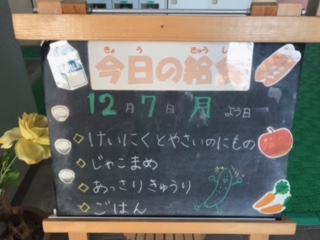 きょう きゅうしょく
今日の給食
12月7日 月よう日
けいにくとやさいのにもの
じゃこまめ
あっさりきゅうり
ごはん